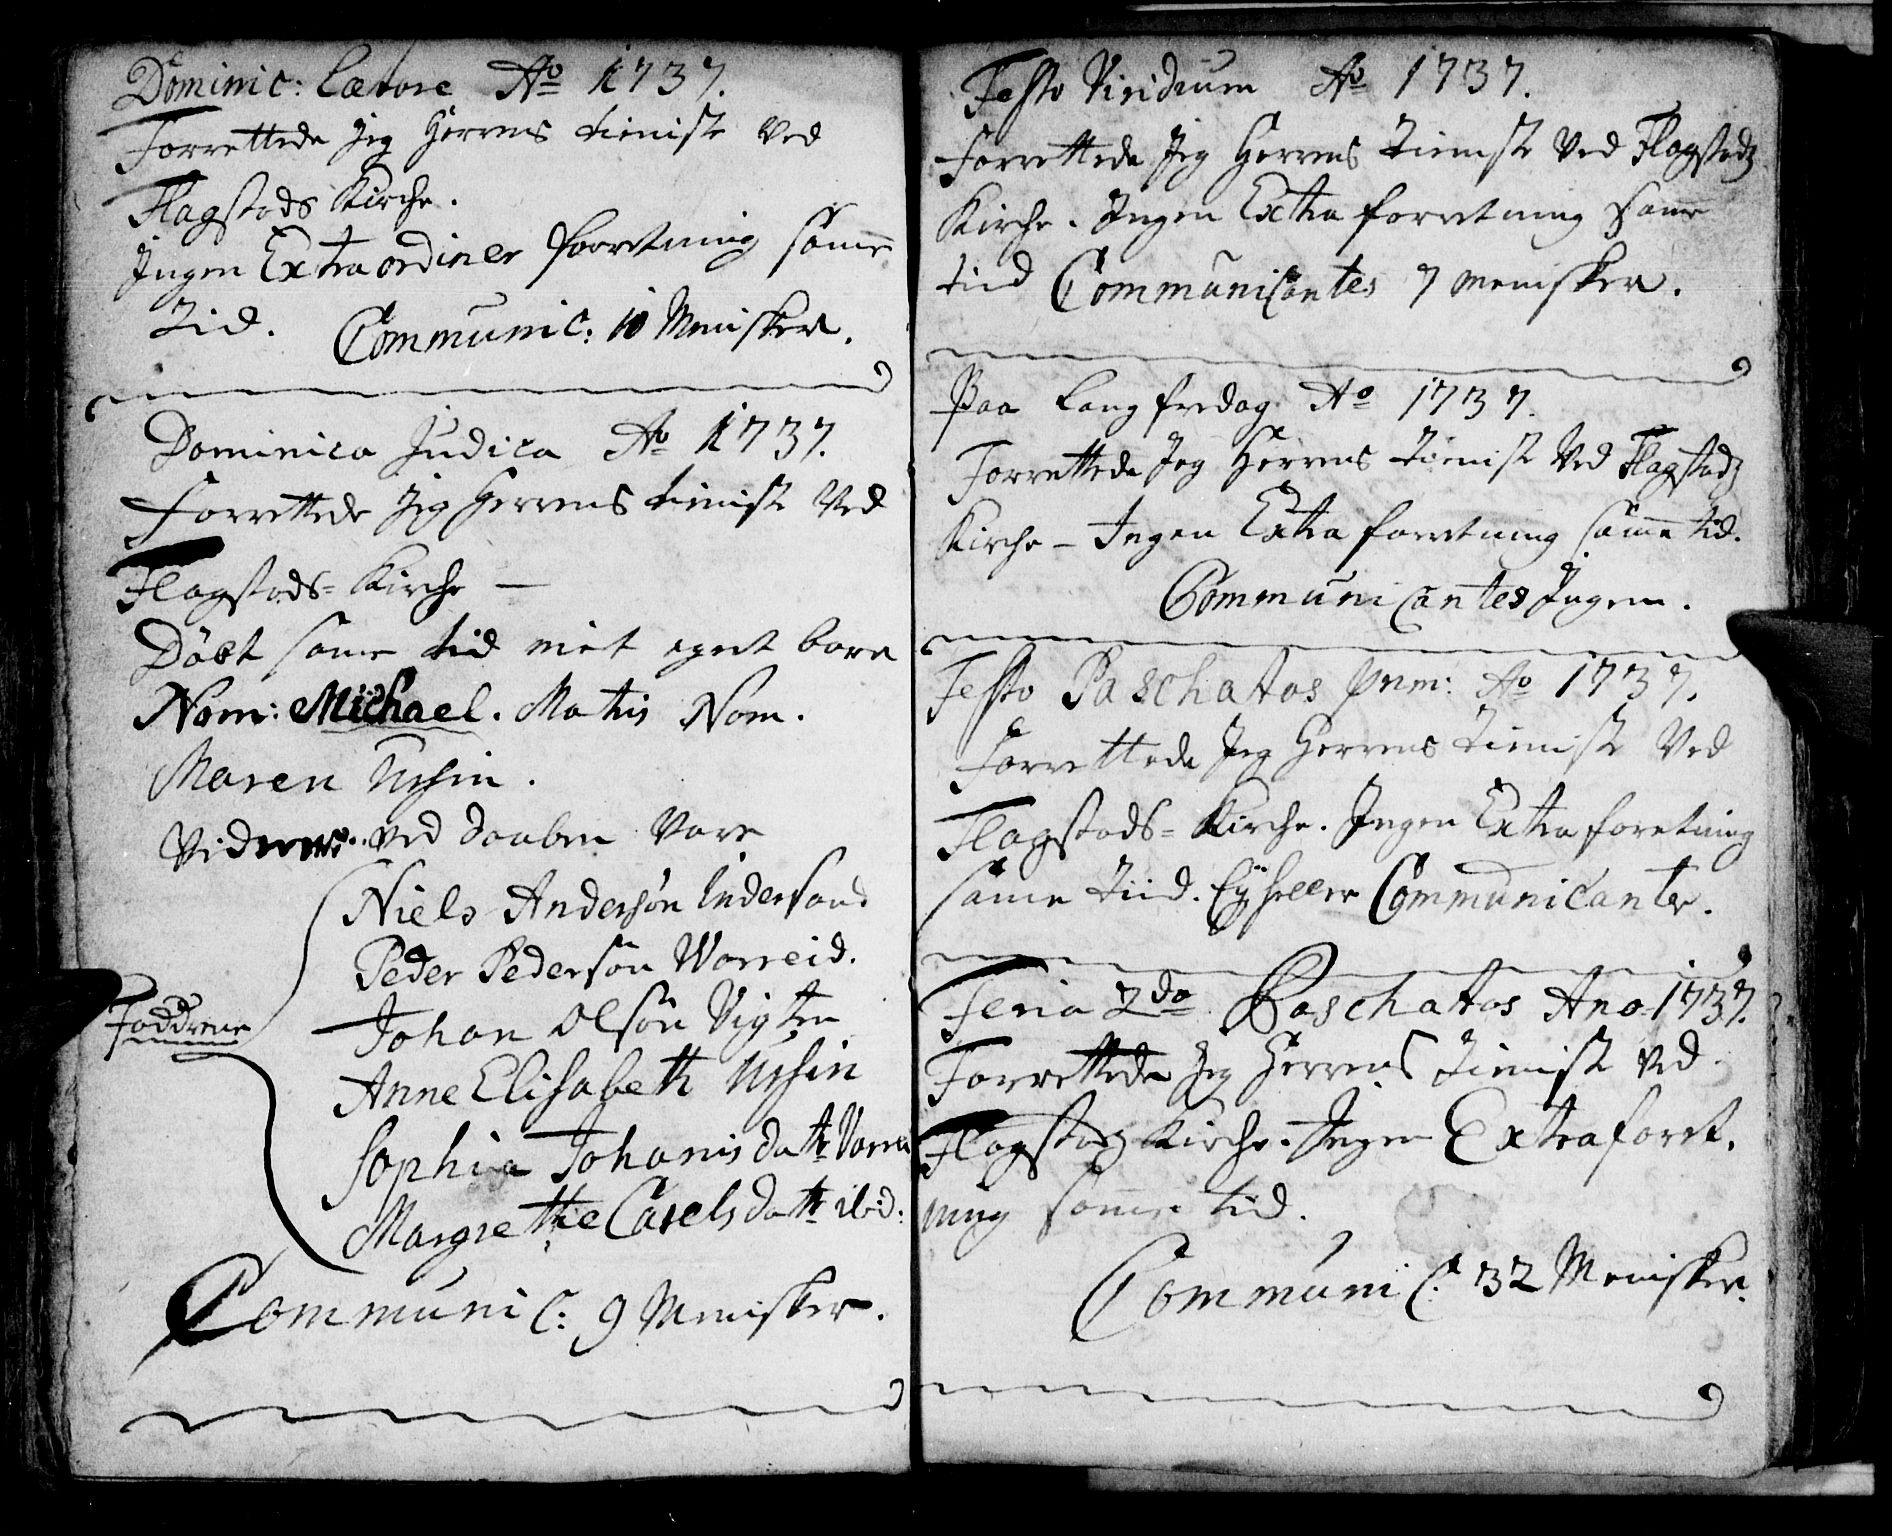 Dominic: Lætare Ao 1737.
Forrettede Jeg Herrens tieniste ved
Flagstads Kirche.
Ingen Extraordiner forretning samme
tid. Communic: 10 Menisker.
Dominica Judica Ao 1737.
Forrettede Jeg Herrens tieniste Ved
Flagstads= Kirche —
Döbt samme tid mit eget barn
Nom: Michael. Matris Nom.
Maren
Vidner ved daaben Vare
Niels Andersøn Indersand
Peder Pedersøn Warreid.
Johan Olsøn Vigten
Fadderne
Anne Elisabeth
Sophia Johanisdattr
Margrethe Carelsdattr ibid:
Communic: 9 Menisker.
Festo Viridium Ao 1737.
Forrettede Jeg Herrens Tieniste Ved Flagstads
Kirche. Ingen Extra forretning samme
tiid Communicantes 7 Menisker.
Paa Langfredag Ao 1737.
Forrettede Jeg Herrens tieniste Ved Flagstads
Kirche — Ingen Extra forretning samme tid.
Communicantes Ingen.
Festo Paschatos prim: Ao 1737.
Forrettede Jeg Herrens Tieniste Ved
Flagstads= Kirche. Ingen Extra foretning
samme tiid. Ey heller Communicanter.
Feria 2da Paschatos Ano 1737.
Forrettede Jeg Herrens Tieniste ved
Flagstads Kirche. Ingen Extra foret,
ning samme tid.
Communic: 32 Menisker.